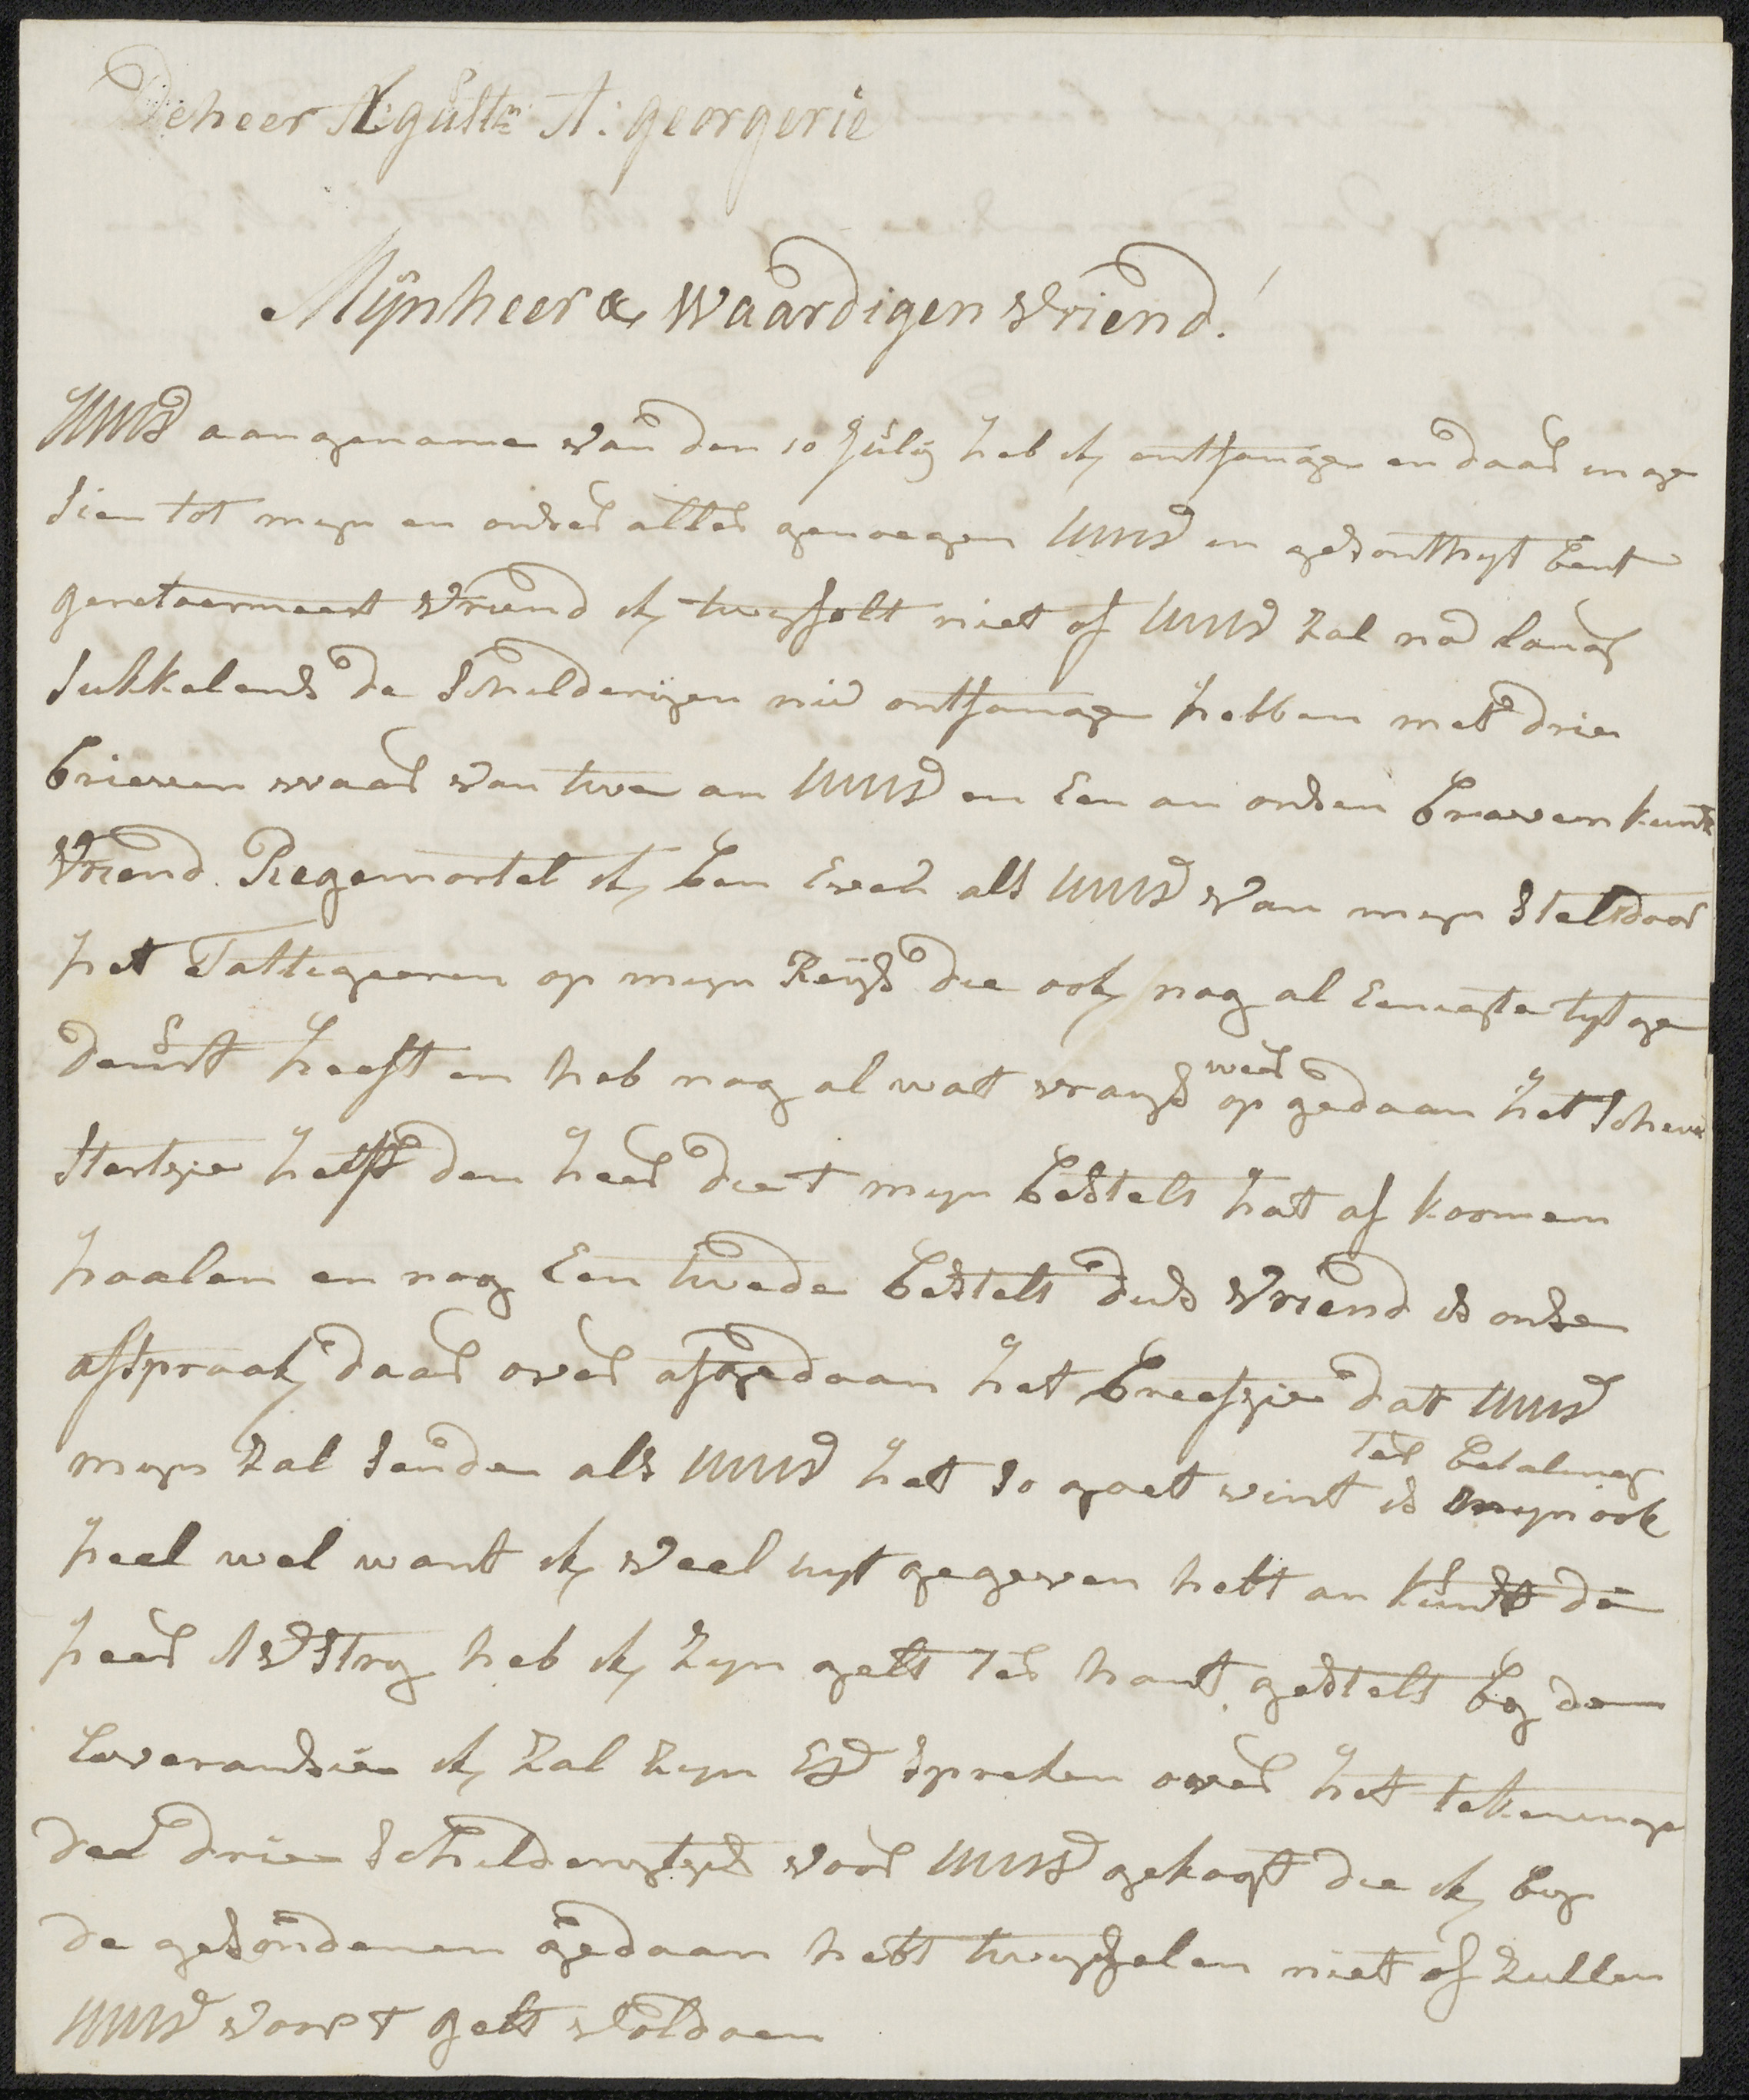 De heer A: gult: A: georgerie
Mijnheer & waardigen vriend!
UWED aangename van den 10 Julij heb ik ontfange en daar in ge
sien tot myn en onser aller genoegen UWED in gesonthyt bent
geretoerneert vriend ik twyfelt niet of UWED zal na lang
sukkelens de schilderijen nu ontfange hebben met drie
brieven waar van twe an UWED en een an onsen braven kunst
vriend Regemortel ik ben even als UWED van myn stel door
het Fattigeeren op myn Reijs die ook nog al eenigste tyt ge
deurt heeft en heb nog al wat vrays weer op gedaan het
stertsie heeft den heer die t myn bestelt hat af koomen
haalen en nog een twede bestelt dus vriend is onse
afspraak daar over afgedaan het breefsie dat UWED
myn zal senden als UWED het so goet vint is ter betaling myn ook
heel wel want ik veel uyt gegeven hebt an kunst de
heer heb ik zyn gelt ter hant gestelt by den
leveransie ik zal zyn ED spreken over het tekeninge
der drie schilderytjes voor UWED gekogt die ik by
de gesondenen gedaan hebt twyffelen niet of zullen
UWED voor t gelt voldoen